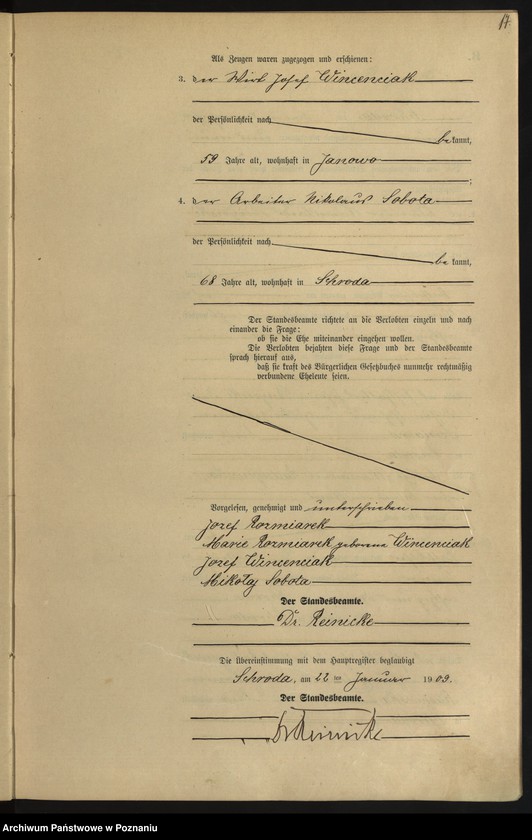 17.
Als Zeugen waren zugezogen und erschienen:
3. der Wirt Josef Wincenciak
der Persönlichkeit nach
bekannt,
59 Jahre alt, wohnhaft in Janowo
;
4. der Arbeiter Nikolaus Sobota
der Persönlichkeit nach
bekannt,
68 Jahre alt, wohnhaft in Schroda
Der Standesbeamte richtete an die Verlobten einzeln und nach
einander die Frage:
ob sie die Ehe miteinander eingehen wollen.
Die Verlobten bejahten diese Frage und der Standesbeamte
sprach hierauf aus,
daß sie kraft des Bürgerlichen Gesetzbuches nunmehr rechtmäßig
verbundene Eheleute seien.
Vorgelesen, genehmigt und unterschrieben
Jozef Rozmiarek
Marie Rozmiarek geborene Wincenciak
Jozef Wincenciak
Mikołaj Sobota
Der Standesbeamte.
Dr. Reinicke
Die Übereinstimmung mit dem Hauptregister beglaubigt
Schroda, am 22 ten Januar 1909.
Der Standesbeamte.
Dr Reinicke
Archiwum Państwowe w Poznaniu